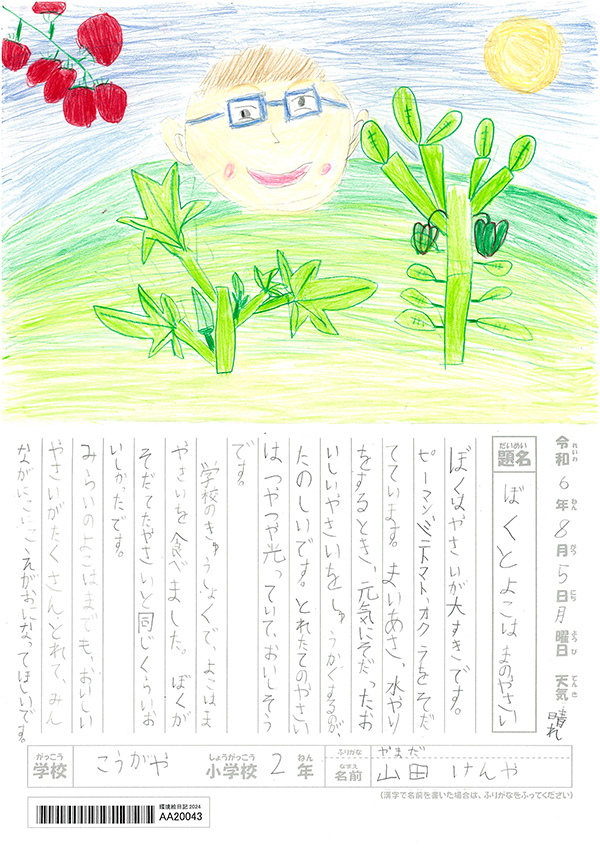 令和6年8月5日月曜日 天気 晴れ
れいわ ねん がつ にち ようび てんき
だいめい
題名 ぼくとよこはまのやさい
ぼくはやさいが大すきです。
ピーマン、ミニトマト、オクラをそだ
てています。まいあさ、水やり
をするとき、元気にそだったお
いしいやさいをしゅうかくするのが、
たのしいです。とれたてのやさい
は、つやつや光っていて、おいしそう
です。
学校のきゅうしょくで、よこはま
やさいを食べました。ぼくが
そだてたやさいと同じくらい、お
いしかったです。
みらいのよこはまでも、おいしい
やさいがたくさんとれて、みん
ながにこにこえがおになってほしいです。
がっこう しょうがっこう ねん
学校 こうがや 小学校 2年
ふりがな やまだ
なまえ
名前 山田 けんや
(漢字で名前を書いた場合は、ふりがなをふってください)
環境絵日記2024
AA20043